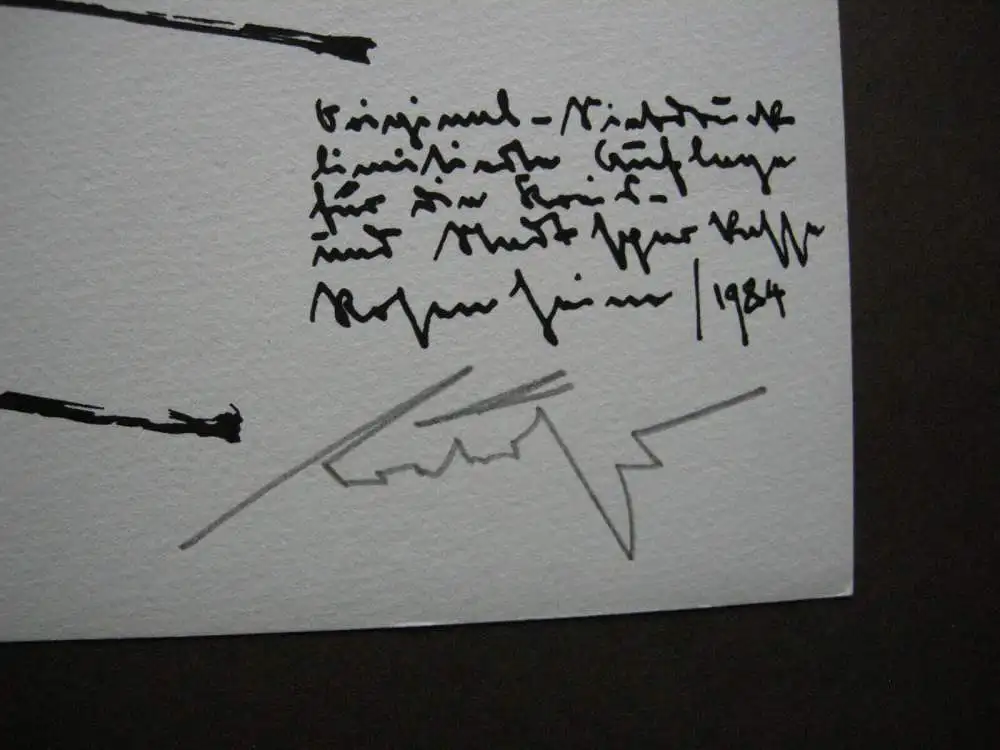 Original-Siebdruck
limitierte Auflage
für die Kreis-
und Stadtsparkasse
Rosenheim/1984